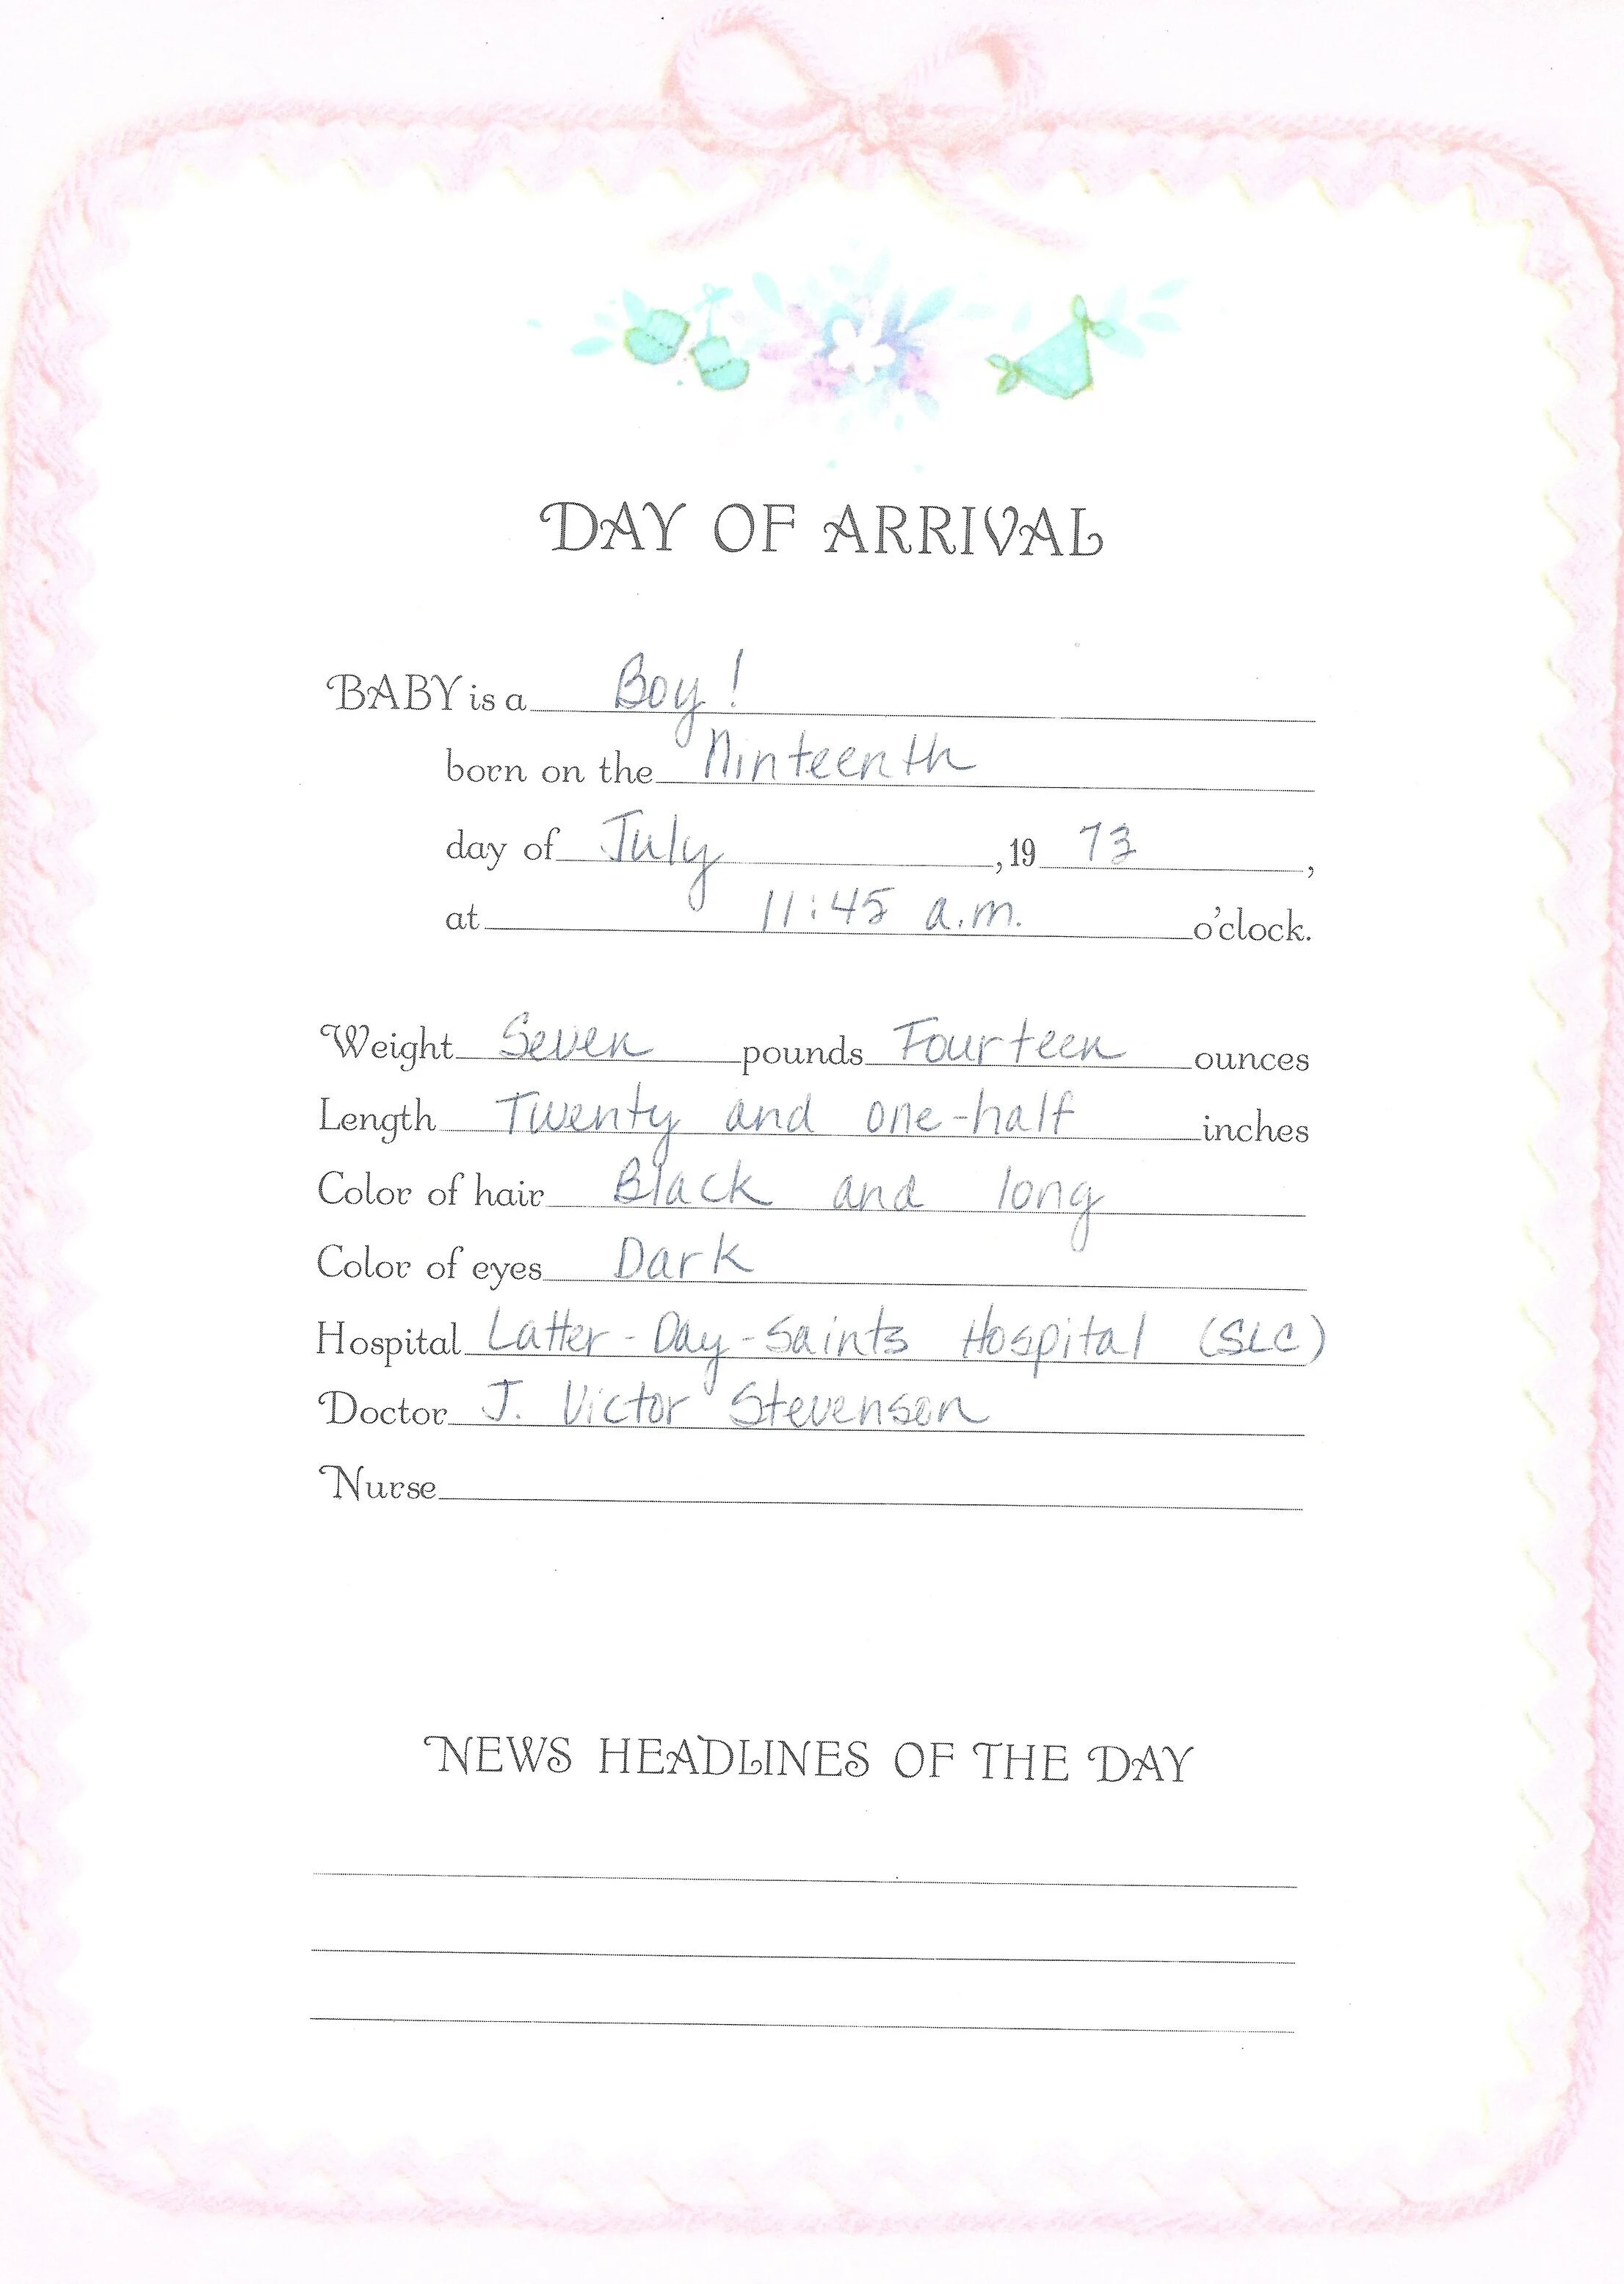 DAY OF ARRIVAL
BABY is a Boy!
born on the Ninteenth
day of July, 19 73,
at 11:45 a.m. o'clock.
Weight Seven pounds Fourteen ounces
Length Twenty and one-half inches
Color of hair Black and long
Color of eyes Dark
Hospital Latter-Day-Saints Hospital (SLC)
Doctor J. Victor Stevenson
Nurse
NEWS HEADLINES OF THE DAY